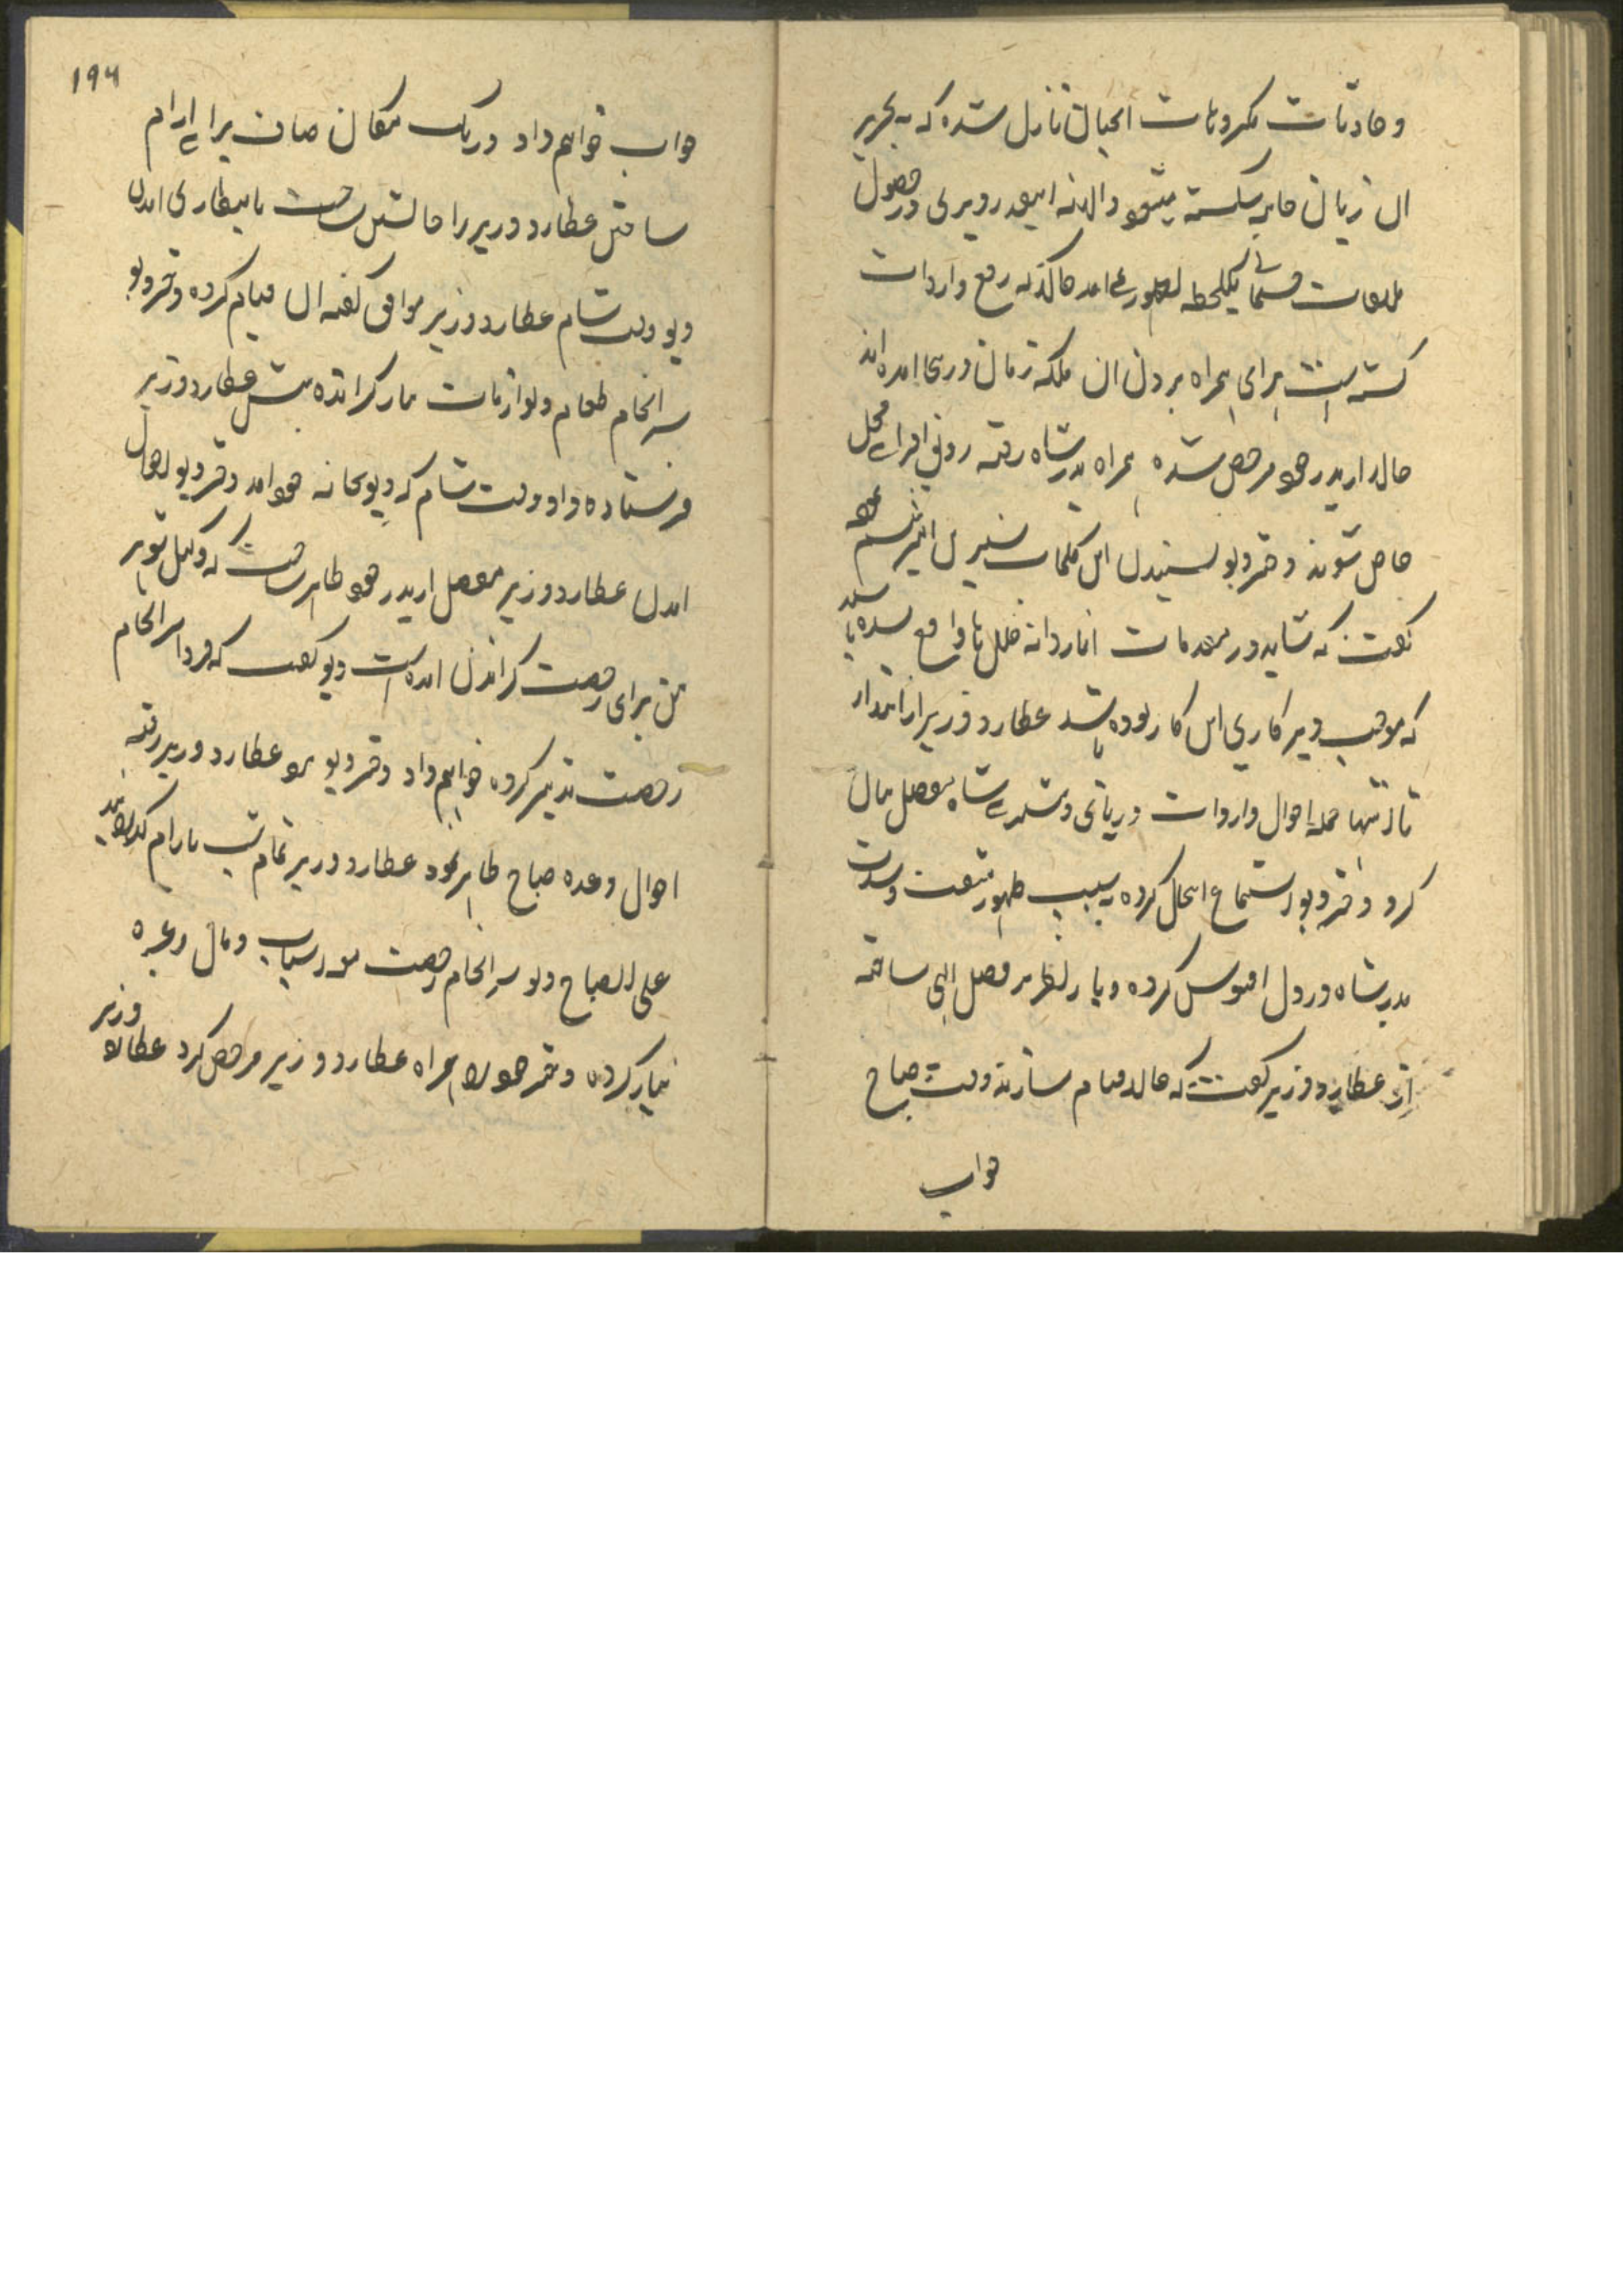 و حادثات مکروهات انجبال نازل شده که به تحریر
ان زبان خامه شکسته میشود والا نه اینقدر دیری در حصول
ملاقات جسمانی یکلحظه بظهور نمی امد حالا که رفع واردات
گشته است برای همراه بردن ان ملکه زمان درینجا امده اند
حالا از پدر خود مرخص شده همراه بدر شاه رفته رونق افزای محل
خاص شوند دختر دیو بشنیدن این کلمات شیرین تبسم نموده
گفت که شاید در مقدمات انار دانه خلل ها واقع شده باشد
که موجب دیر کاری این کار بوده باشد عطارد وزیر از ابتدا
تا انتها جمله احوال واردات دریائی و شاه مفصل بیان
کرد دختر دیو استماع کرده به سبب ظهور مشقت و شدت
بدر شاه در دل افسوس کرده و باز نظر بر فضل الهی ساخته
از عطارد وزیر گفت که حالا قیام سازند وقت صباح
جواب
۱۹۴
جواب خواهم داد و در یک مکان صاف برای ارام
ساختن عطارد وزیر را جا نشین ساخت با انتظاری امدن
دیو وقت شام عطارد وزیر موافق گفته ان قیام کرده دختر دیو
سرانجام طعام و لوازمات تیار کرانده پیش عطارد وزیر
فرستاده داد وقت شام که دیو بخانه خود امد دختر دیو احوال
امدن عطارد وزیر مفصل از پدر خود ظاهر ساخت که وکیل شوهر
من برای رخصت کراندن امده است دیو گفت که فردا سرانجام
رخصت تدبیر کرده خواهم داد دختر دیو نزد عطارد وزیر رفته
احوال وعده صباح ظاهر نمود عطارد وزیر تمام شب بارام گذرانید
علی الصباح دیو سرانجام رخصت اسباب و مال وغیره
تیار کرده دختر خود را همراه عطارد وزیر مرخص کرد عطارد وزیر